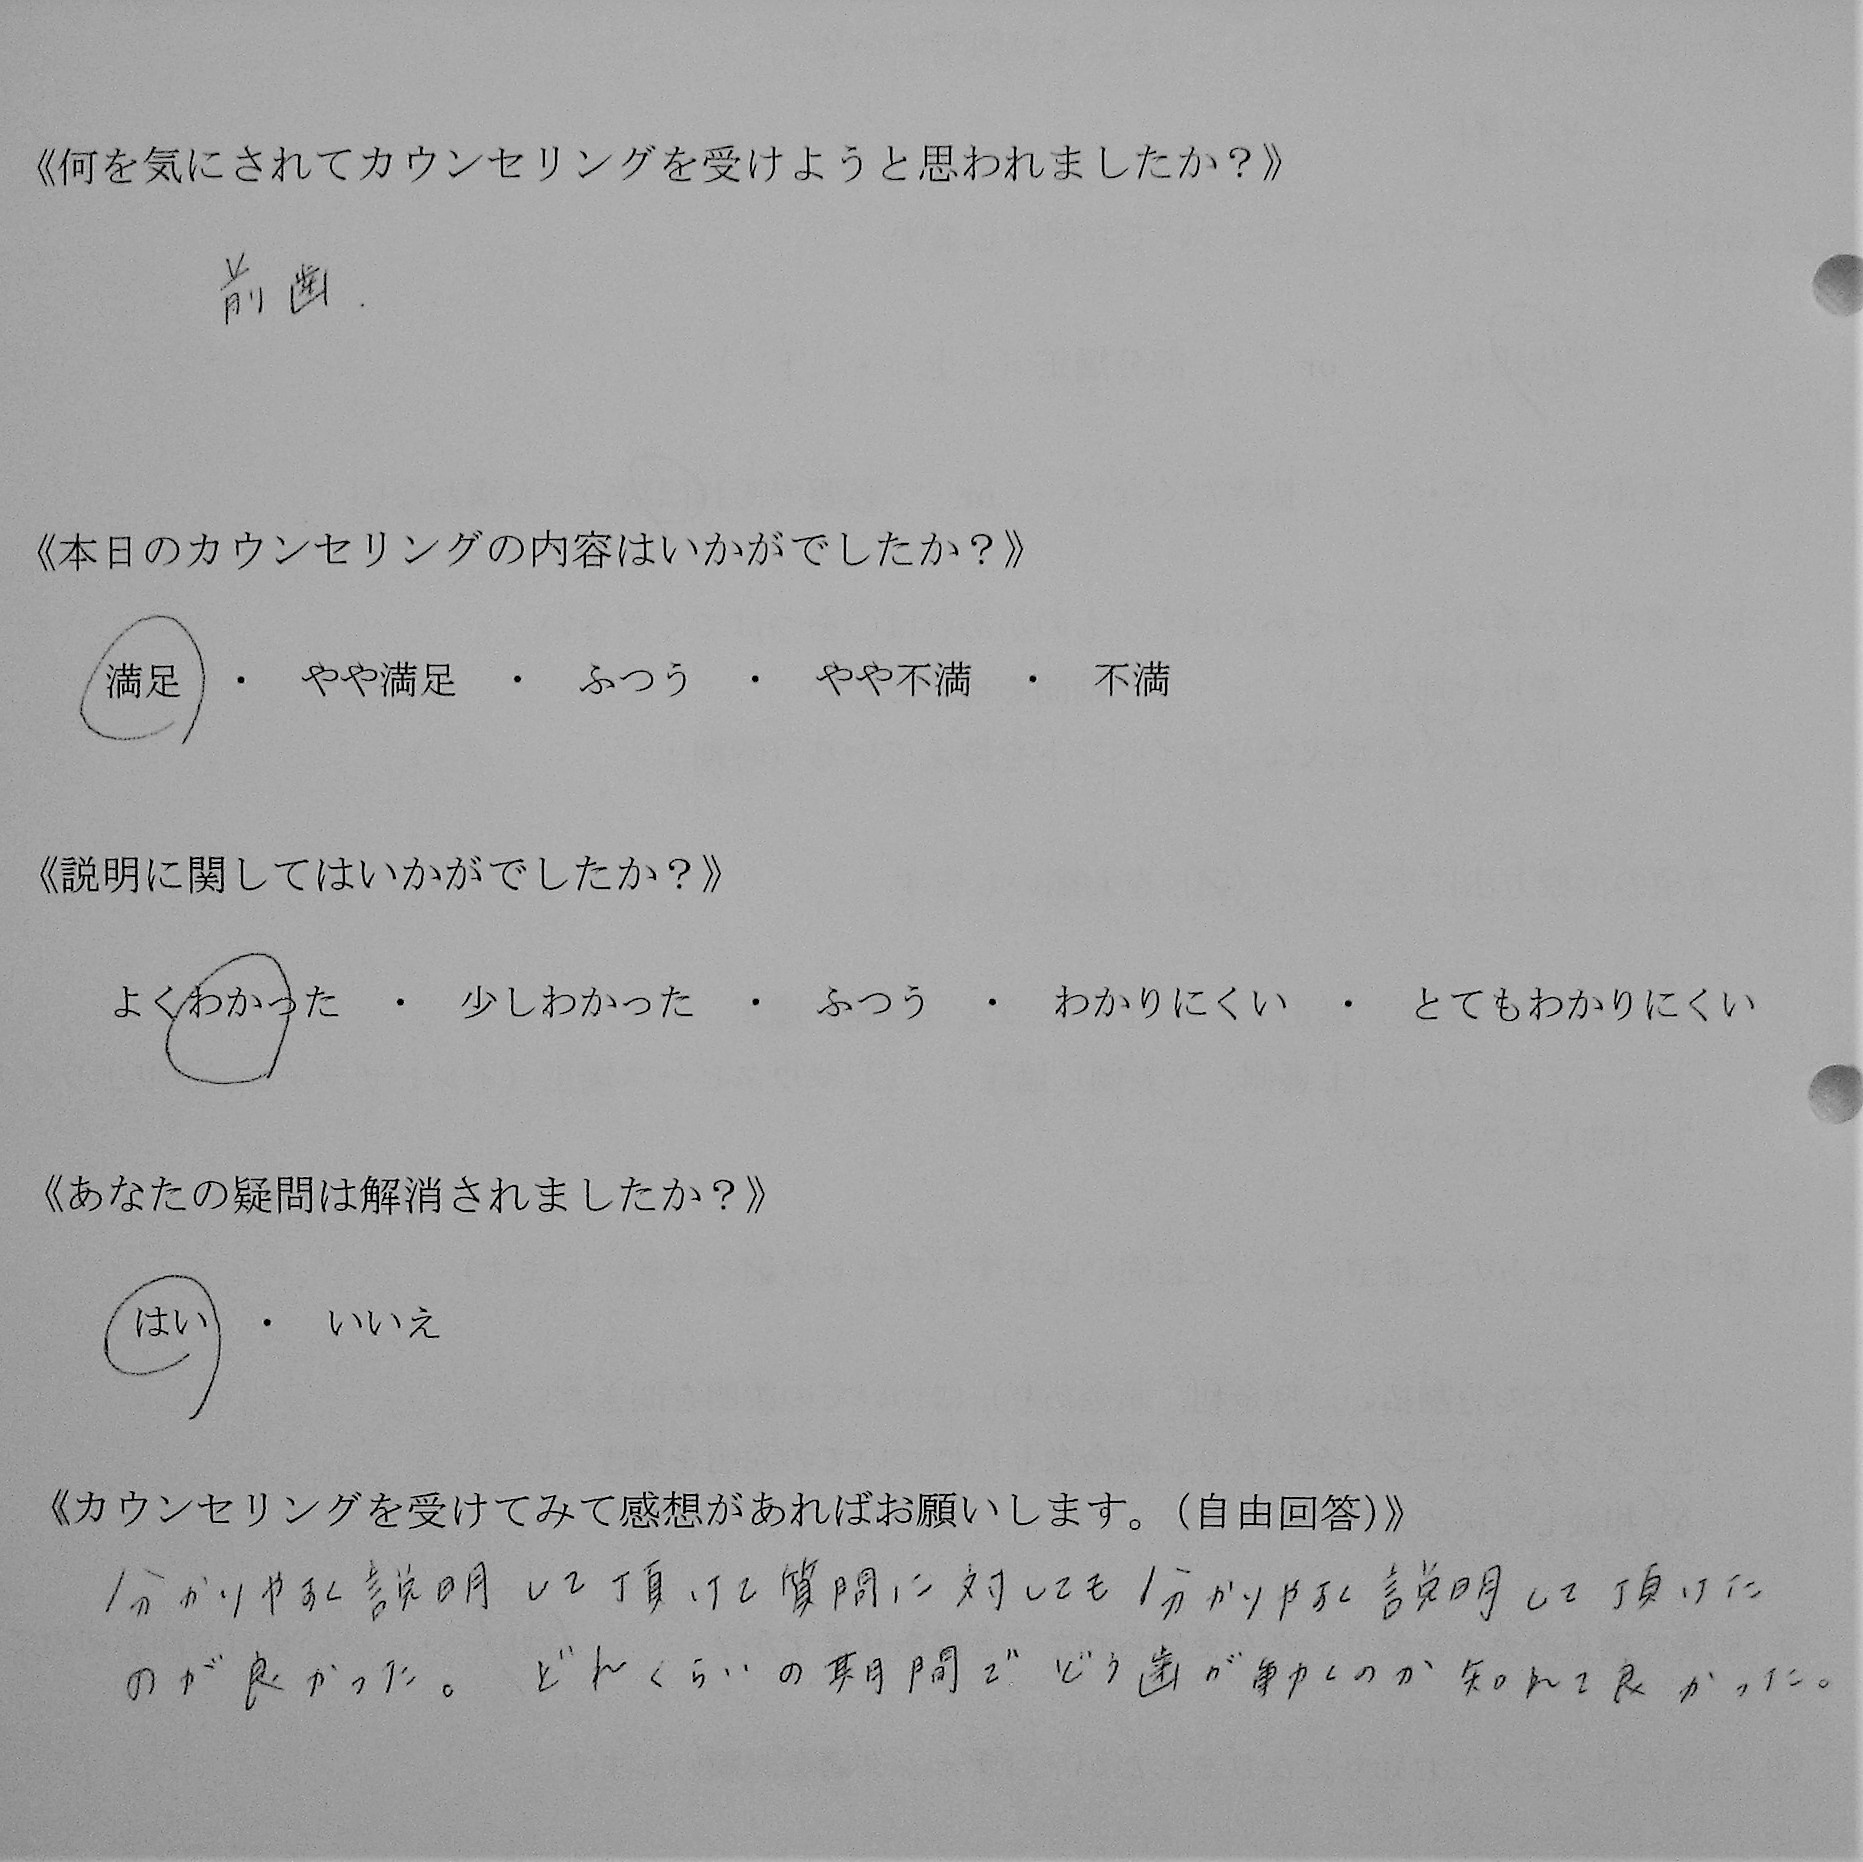 《何を気にされてカウンセリングを受けようと思われましたか？》
前歯.
《本日のカウンセリングの内容はいかがでしたか？》
満足 ・ やや満足 ・ ふつう ・ やや不満 ・ 不満
《説明に関してはいかがでしたか？》
よくわかった ・ 少しわかった ・ ふつう ・ わかりにくい ・ とてもわかりにくい
《あなたの疑問は解消されましたか？》
はい ・ いいえ
《カウンセリングを受けてみて感想があればお願いします。（自由回答）》
分かりやすく説明して頂けて質問に対しても分かりやすく説明して頂けた
のが良かった。どれくらいの期間でどう歯が動くのか知れて良かった。